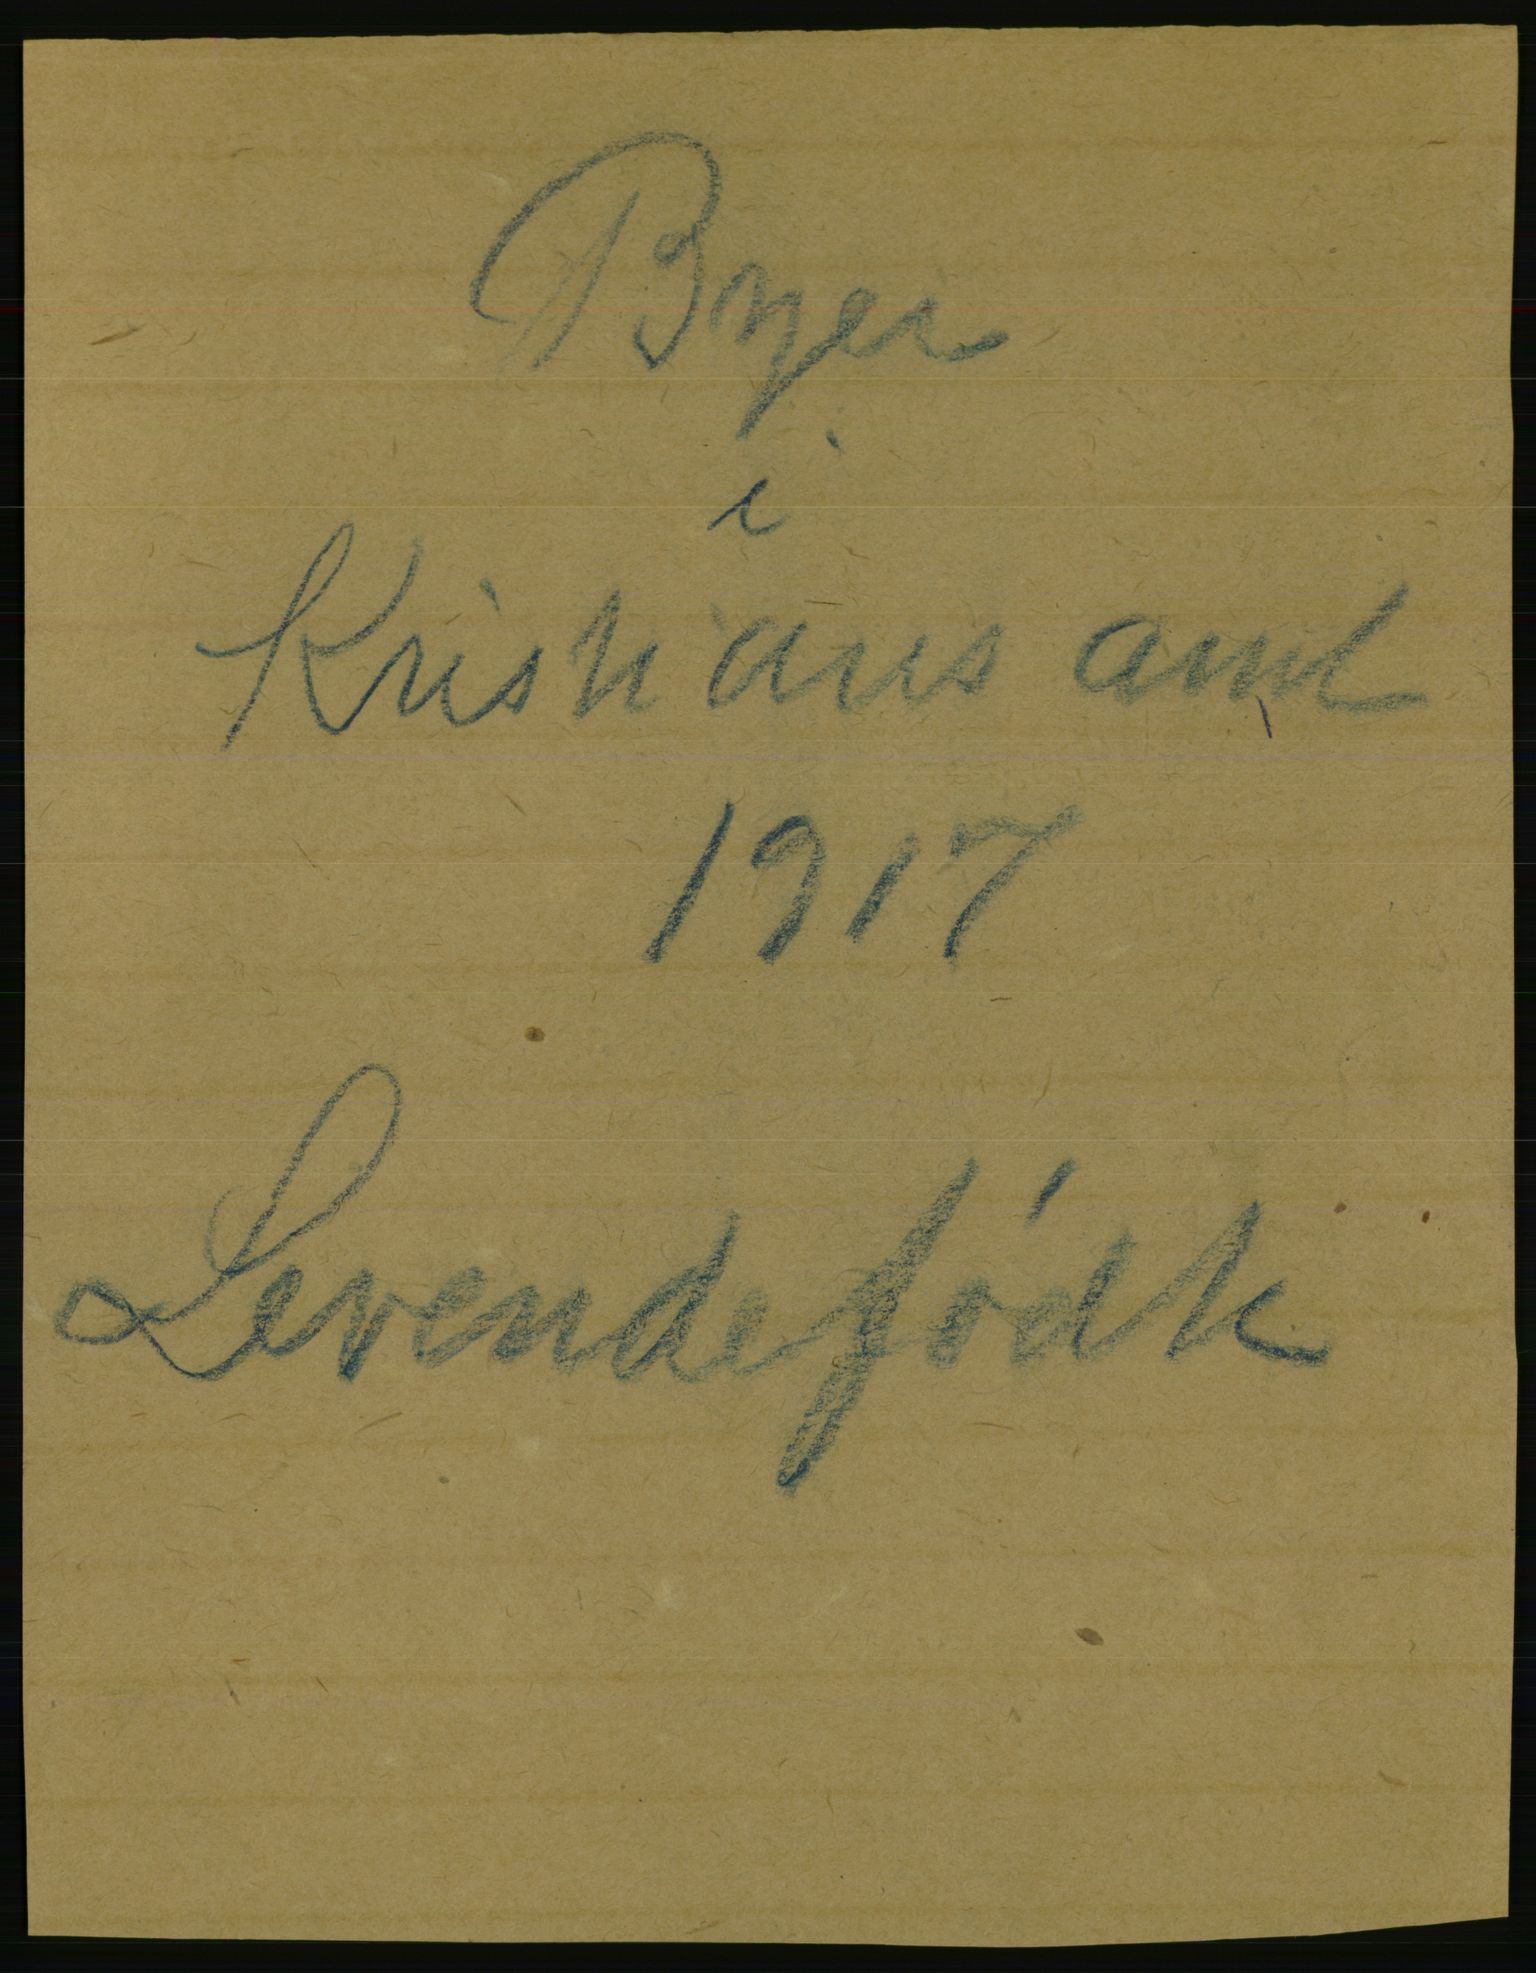 Byer
i
Kristians amt
1917
Levendefødte